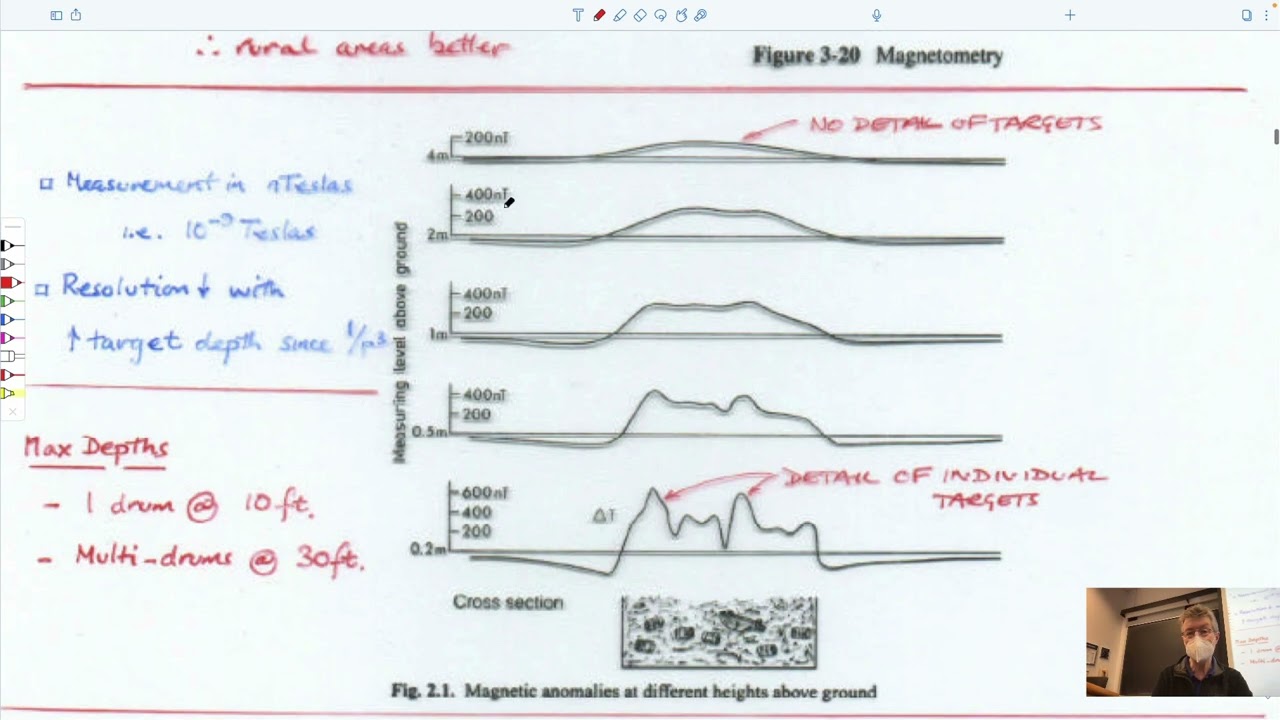 ∴ rural areas better
Figure 3-20 Magnetometry
NO DETAIL OF TARGETS
200nT
4m
□ Measurement in nTeslas
i.e. 10⁻⁹ Teslas
400nT
200
2m
□ Resolution ↓ with
↑ target depth since 1/r³
Measuring level above ground
400nT
200
1m
400nT
200
0.5m
Max Depths
- 1 drum @ 10ft.
- Multi-drums @ 30ft.
DETAIL OF INDIVIDUAL
TARGETS
600nT
400
200
ΔT
0.2m
Cross section
Fig. 2.1. Magnetic anomalies at different heights above ground